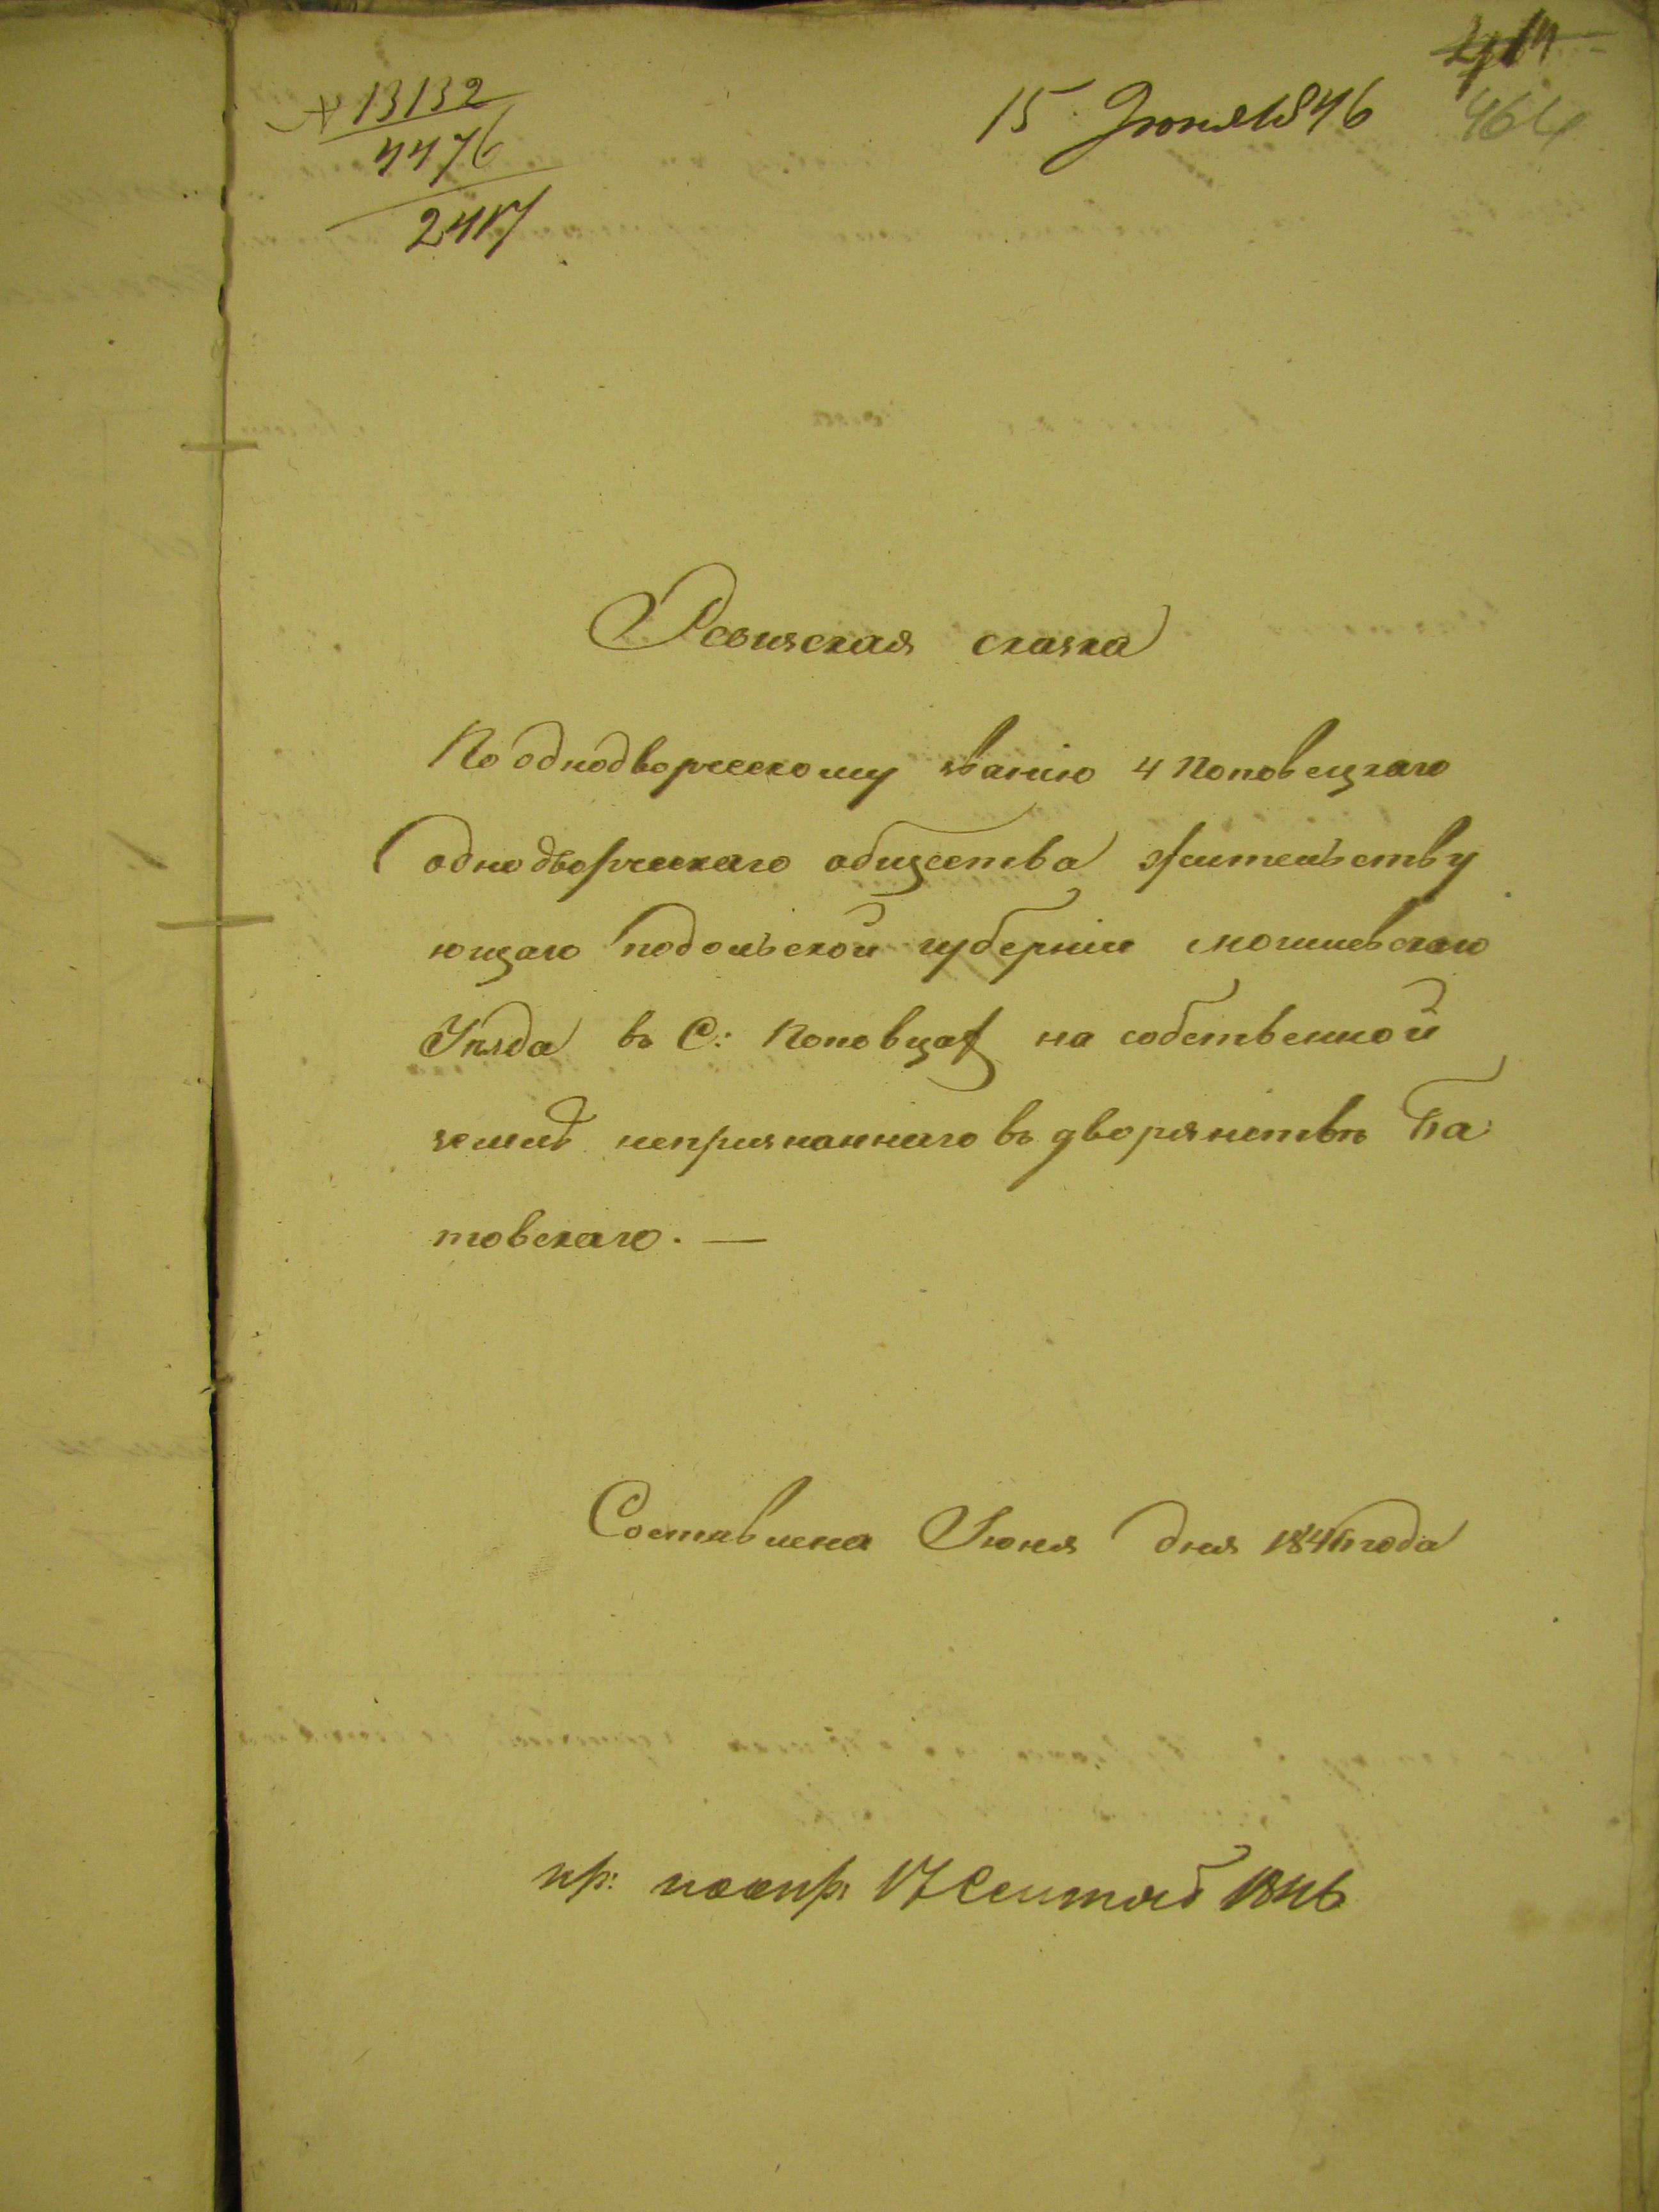 13132
4476
2417
15 Июня 1846
464
Ревизская сказка
По однодворческому званію 4 Поповецкаго
однодворческаго общества жительству
ющаго подольской губерніи могилевскаго
Уѣзда въ С: Поповцах на собственной
землѣ непризнаннаго въ дворянствѣ Ба
товскаго. —
Составлена Іюня дня 1846 года
пр: 17 Сентяб 1846